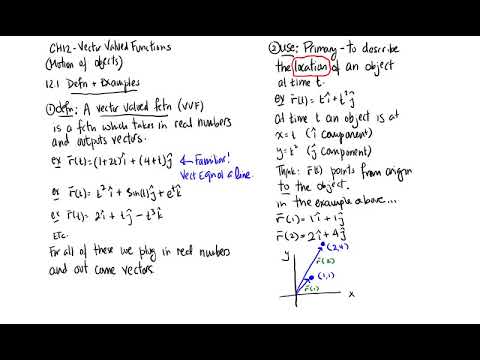 CH12 - Vector Valued Functions
(Motion of objects)
12.1 Defn + Examples
① defn: A vector valued fctn (VVF)
is a fctn which takes in real numbers
and outputs vectors.
ex r̄(t) = (1+2t)î + (4+t)ĵ
← Familiar!
Vect Eqn of a line.
ex r̄(t) = t²î + sin(t)ĵ + eᵗk̂
ex r̄(t) = 2î + tĵ - t³k̂
Etc.
For all of these we plug in real numbers
and out come vectors
② use: Primary - to describe
the location of an object
at time t.
ex r̄(t) = tî + t²ĵ
at time t an object is at
x = t (î component)
y = t² (ĵ component)
Think: r̄(t) points from origin
to the object.
in the example above...
r̄(1) = 1î + 1ĵ
r̄(2) = 2î + 4ĵ
(2,4)
y
r̄(2)
(1,1)
r̄(1)
x